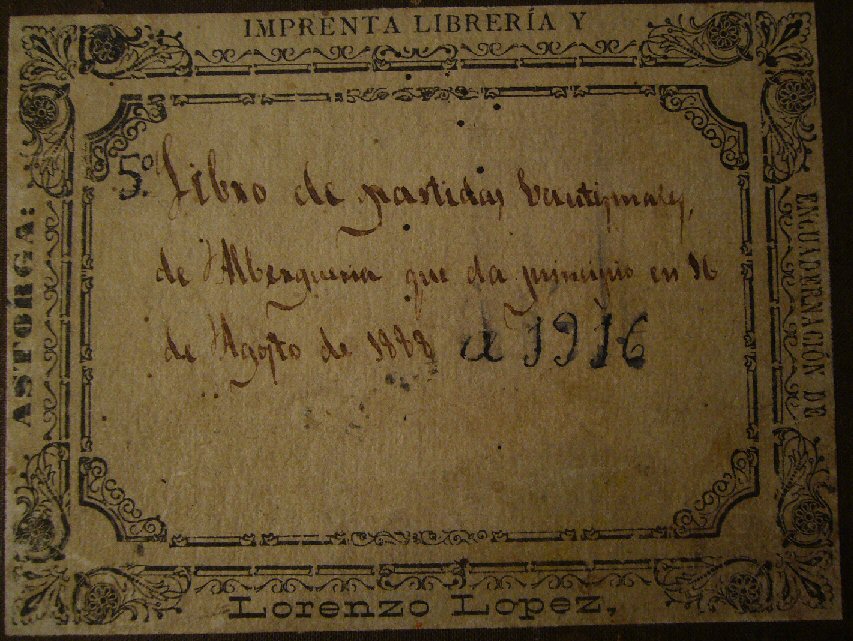 IMPRENTA LIBRERÍA Y
ENCUADERNACIÓN DE
Lorenzo Lopez,
ASTORGA:
5º Libro de partidas bautismales,
de Alberguería que da principio en 16
de Agosto de 1888 a 1916